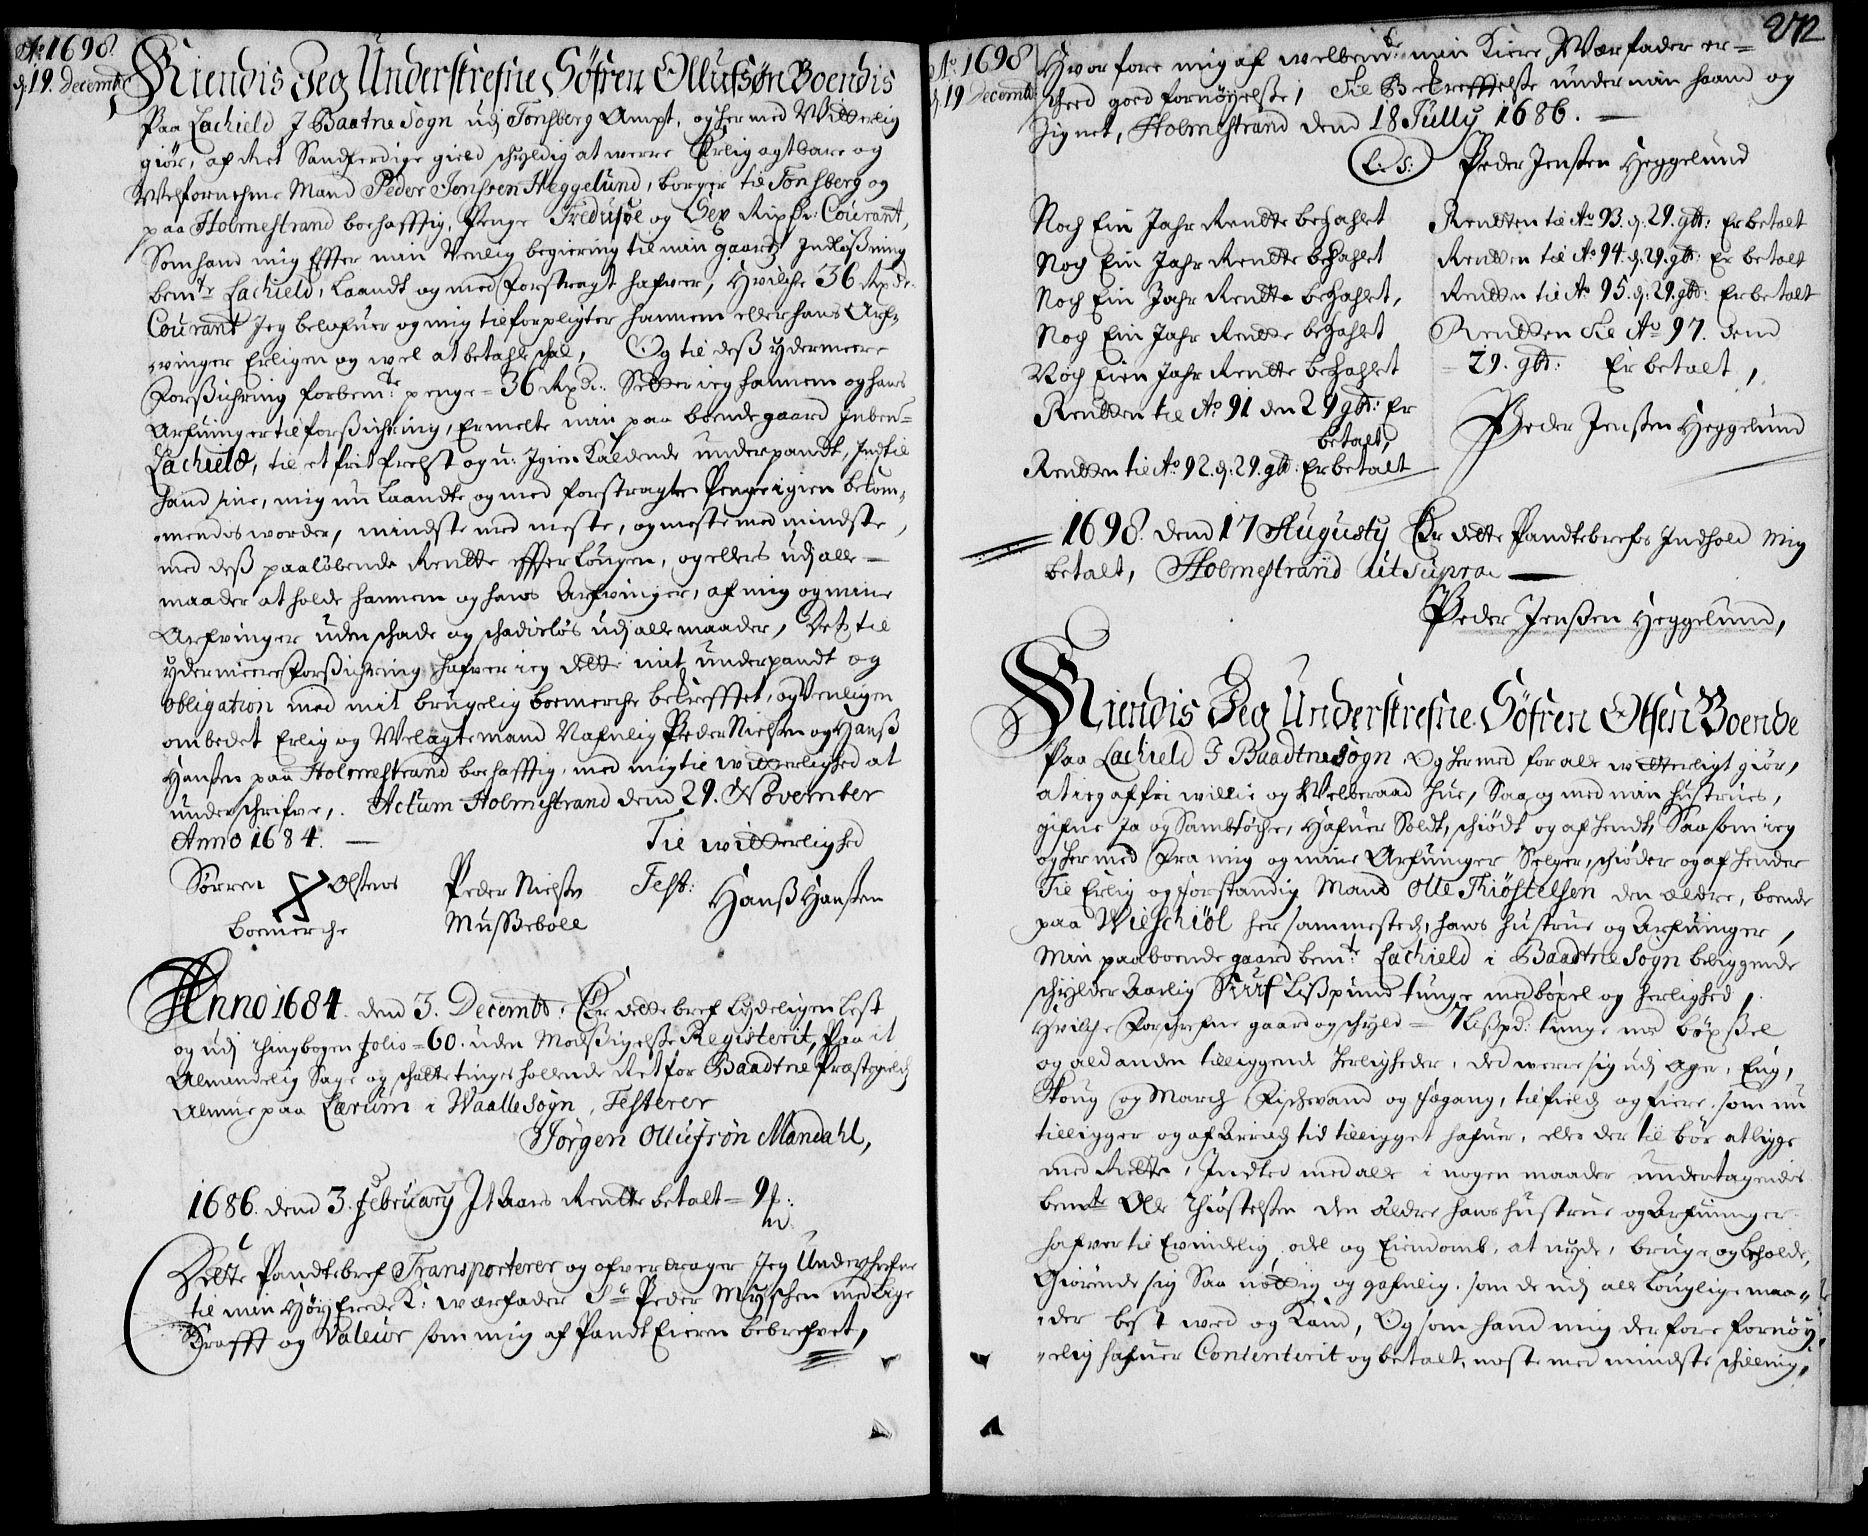 Ao 1698
d: 19. Decembr
Kiendis Jeg Underskrefne Söfren Ollufsøn Boendis
Paa Lachield J Baatne Sogn udj Tonsberg Ampt, og her med Witterlig
giør, af Ret Sandferdige gield schyldig at werre Erlig agtbare og
Welfornehme Mand Peder Jenssen Heggelund, borger til Tonsberg og
paa Holmestrand boehafftig, Penge Tredusöe og Sex Rixdr: Courant,
Som hand mig Effter min Venlig begiering til min gaards Indløssning
bemte Lachield, Laandt og med forstragt hafver, Hvilche 36 Rixdr.
Courant Jeg belofuer og mig tilforpligter hannem eller hans Arf-
vinger Erligen og wel at betahle schal, Og til dess ydermeere
Forssichring forbemte penge = 36 Rxdr: Setter ieg hannem og hans
Arfuinger til forssichring, Ermelte min paa boende gaard Inben-
Lachield, til et frit frelst og u-Igien Kaldende underpandt, Indtil
hand sine, mig nu Laandte og med forstragte Penge igien bekom-
mendis worder, mindste med meste, og meste med mindste,
med dess paaløbende Rentte effter Lougen, og ellers udj alle
maader at holde hannem og hans Arfvinger, af mig og mine
Arfvinger uden schade og schadesløs udj alle maader, Dets til
ydermeere forssichring hafver ieg dette mit underpandt og
obligation med mit brugelig boemerche bekrefftet, og Venligen
ombedet Erlig og Welagte mand Nafnlig Peder Nielsen og Hanss
Hanssen paa Holmestrand boehafftig, med mig til witterlighed at
underschrifve, Actum Holmestrand dend 29. November
Anno 1684.
Til witterlighed
Sørren Olsens
boemerche
Peder Nielsen
Mussebole
Test:
Hanss Hanssen
Anno 1684. dend 3. Decembr. Er dette bref Lydeligen lest
og udj Thingbogen folio = 60. uden Modssigelsse Registerit, Paa it
Almindelig Sage og schatte tinges hollende Ret for Baadtne Præstegields
Almue paa Lærum i Waalle Sogn, Testerer
Jørgen Ollufsøn Mandahl,
1686. dend 3. february It Aars Rentte betalt = 9 ß:
Dette Pandtebref Transporterer og ofverdrager Jeg Underschrefne
til min Høy Erede K: wærfader Sr Peder Mÿschen med Lige
Krafft og Valeur som mig af Pandt Eieren bebrefvet,
272
Ao 1698
d. 19 Decembr
Hvorfore mig af welbemte min Kiere Værfader er-
scheed goed fornøyelsse, Til Bekrefftelse under min haand og
Zignet, Holmestrand dend 18 Jully 1686.
L: S: Peder Jenssen Heggelund
Noch Ein Jahr Rendte bezahlet
Noch Ein Jahr Rendte bezahlet
Noch Ein Jahr Rendte bezahlet,
Noch Ein Jahr Rendte bezahlt
Noch Eien Jahr Rendte bezahlet
Rendten til Ao 91 den 29 9br: Er
betalt,
Rendten til Ao 92. d: 29. 9br: Er betalt
Rendten til Ao 93. d: 29. 9br: Er betalt
Rendten til Ao 94. d: 29. 9br: Er betalt
Rendten til Ao 95. d: 29. 9br: Er betalt
Rendten Til Ao 97. dend
29. 9br: Er betalt,
Peder Jenssen Heggelund
1698. dend 17 Augusty Er dette Pandtebrefs Indhold mig
betalt, Holmestrand ut supra
Peder Jenssen Heggelund,
Kiendis Jeg Underskrefne Söfren Olsen Boende
Paa Lachield J Baadtne Sogn, Og her med for alle witterligt giør,
at ieg af frii willie og Welberaad hue, Saa og med min hustrues,
gifne Ja og Sambtöche, Hafuer Soldt, schiödt og afhendt, Saasom ieg
og her med fra mig og mine Arfuinger Selger, schiøder og afhender
Til Erlig og forstandig Mand Olle Thiöstelsen den ældre, boende
paa Wilschiöl her sammesteds, hans hustrue og Arfuinger,
Min paaboende gaard bemte Lachield i Baadtne Sogn beliggende
schylder Aarlig Siuf Lisspund tunge med böxel og herlighed,
Hvilche Forschrefne gaard og schyld = 7 Lisspd: tunge med böxssel
og ald anden tilliggende herligheder, ded werre sig udj Ager, Eng,
Skoug og March Fischevand og fægang, til fields og fiere, som nu
tilligger og af Arrilds tid tilligget hafuer, eller der til bör at ligge
med Rette, Indted med alle i nogen maader undertagendis
bemte Olle Thiöstelsen den ældre hans hustrue og Arfuinger
hafver til Evindelig, odel og Eiendomb, at nyde, bruge og beholde,
Giörende sig Saa nöttig og gafnlig, som de udj alle Louglige maa-
der best weed og Kand, Og som hand mig derfore fornöy-
elig hafuer Contenterit og betalt, meste med mindste schilling,